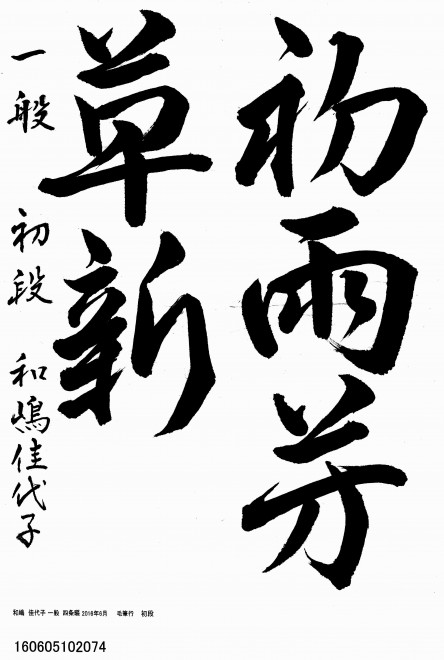 初雨芳
草新
一般 初段 和嶋佳代子
和嶋 佳代子 一般 四条畷 2016年6月 毛筆行 初段
160605102074